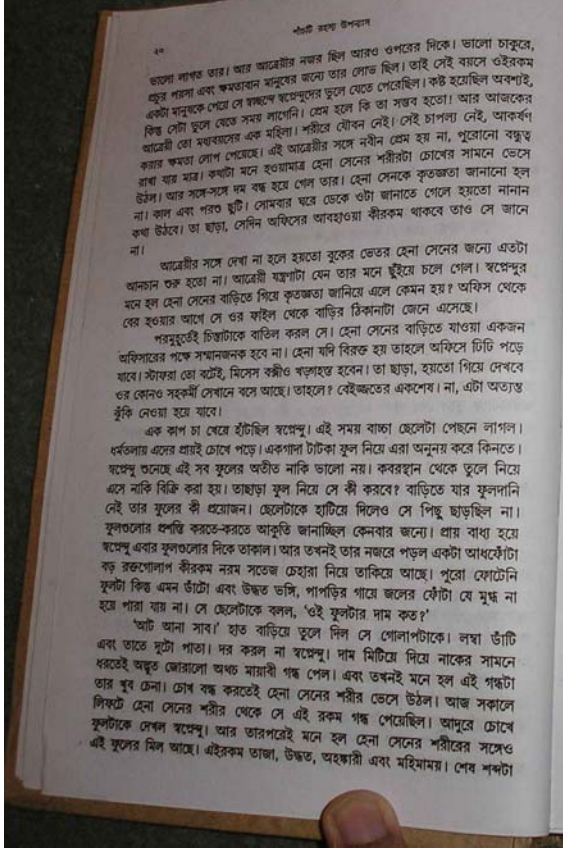 পাঁচটি রহস্য উপন্যাস
২০
ভালো লাগত তার। আর আত্রেয়ীর নজর ছিল আরও ওপরের দিকে। ভালো চাকুরে,
প্রচুর পয়সা এবং ক্ষমতাবান মানুষের জন্যে তার লোভ ছিল। তাই সেই বয়সে ওইরকম
একটা মানুষকে পেয়ে সে স্বচ্ছন্দে স্বপ্নেন্দুদের ভুলে যেতে পেরেছিল। কষ্ট হয়েছিল অবশ্যই,
কিন্তু সেটা ভুলে যেতে সময় লাগেনি। প্রেম হলে কি তা সম্ভব হতো! আর আজকের
আত্রেয়ী তো মধ্যবয়সের এক মহিলা। শরীরে যৌবন নেই। সেই চাপল্য নেই, আকর্ষণ
করার ক্ষমতা লোপ পেয়েছে। এই আত্রেয়ীর সঙ্গে নবীন প্রেম হয় না, পুরোনো বন্ধুত্ব
রাখা যায় মাত্র। কথাটা মনে হওয়ামাত্র হেনা সেনের শরীরটা চোখের সামনে ভেসে
উঠল। আর সঙ্গে-সঙ্গে দম বন্ধ হয়ে গেল তার। হেনা সেনকে কৃতজ্ঞতা জানানো হল
না। কাল এবং পরশু ছুটি। সোমবার ঘরে ডেকে ওটা জানাতে গেলে হয়তো নানান
কথা উঠবে। তা ছাড়া, সেদিন অফিসের আবহাওয়া কীরকম থাকবে তাও সে জানে
না।
আত্রেয়ীর সঙ্গে দেখা না হলে হয়তো বুকের ভেতর হেনা সেনের জন্যে এতটা
আনচান শুরু হতো না। আত্রেয়ী যন্ত্রণাটা যেন তার মনে ছুঁইয়ে চলে গেল। স্বপ্নেন্দুর
মনে হল হেনা সেনের বাড়িতে গিয়ে কৃতজ্ঞতা জানিয়ে এলে কেমন হয়? অফিস থেকে
বের হওয়ার আগে সে ওর ফাইল থেকে বাড়ির ঠিকানাটা জেনে এসেছে।
পরমুহূর্তেই চিন্তাটাকে বাতিল করল সে। হেনা সেনের বাড়িতে যাওয়া একজন
অফিসারের পক্ষে সম্মানজনক হবে না। হেনা যদি বিরক্ত হয় তাহলে অফিসে ঢিঢি পড়ে
যাবে। স্টাফরা তো বটেই, মিসেস বক্সীও খড়্গহস্ত হবেন। তা ছাড়া, হয়তো গিয়ে দেখবে
ওর কোনও সহকর্মী সেখানে বসে আছে। তাহলে? বেইজ্জতের একশেষ। না, এটা অত্যন্ত
ঝুঁকি নেওয়া হয়ে যাবে।
এক কাপ চা খেয়ে হাঁটছিল স্বপ্নেন্দু। এই সময় বাচ্চা ছেলেটা পেছনে লাগল।
ধর্মতলায় এদের প্রায়ই চোখে পড়ে। একগাদা টাটকা ফুল নিয়ে এরা অনুনয় করে কিনতে।
স্বপ্নেন্দু শুনেছে এই সব ফুলের অতীত নাকি ভালো নয়। কবরস্থান থেকে তুলে নিয়ে
এসে নাকি বিক্রি করা হয়। তাছাড়া ফুল নিয়ে সে কী করবে? বাড়িতে যার ফুলদানি
নেই তার ফুলের কী প্রয়োজন। ছেলেটাকে হাটিয়ে দিলেও সে পিছু ছাড়ছিল না।
ফুলগুলোর প্রশস্তি করতে-করতে আকুতি জানাচ্ছিল কেনবার জন্যে। প্রায় বাধ্য হয়ে
স্বপ্নেন্দু এবার ফুলগুলোর দিকে তাকাল। আর তখনই তার নজরে পড়ল একটা আধফোঁটা
বড় রক্তগোলাপ কীরকম নরম সতেজ চেহারা নিয়ে তাকিয়ে আছে। পুরো ফোটেনি
ফুলটা কিন্তু এমন ডাঁটো এবং উদ্ধত ভঙ্গি, পাপড়ির গায়ে জলের ফোঁটা যে মুগ্ধ না
হয়ে পারা যায় না। সে ছেলেটাকে বলল, 'ওই ফুলটার দাম কত?'
'আট আনা সাব।' হাত বাড়িয়ে তুলে দিল সে গোলাপটাকে। লম্বা ডাঁটি
এবং তাতে দুটো পাতা। দর করল না স্বপ্নেন্দু। দাম মিটিয়ে দিয়ে নাকের সামনে
ধরতেই অদ্ভুত জোরালো অথচ মায়াবী গন্ধ পেল। এবং তখনই মনে হল এই গন্ধটা
তার খুব চেনা। চোখ বন্ধ করতেই হেনা সেনের শরীর ভেসে উঠল। আজ সকালে
লিফটে হেনা সেনের শরীর থেকে সে এই রকম গন্ধ পেয়েছিল। আদুরে চোখে
ফুলটাকে দেখল স্বপ্নেন্দু। আর তারপরেই মনে হল হেনা সেনের শরীরের সঙ্গেও
এই ফুলের মিল আছে। এইরকম তাজা, উদ্ধত, অহঙ্কারী এবং মহিমাময়। শেষ শব্দটা